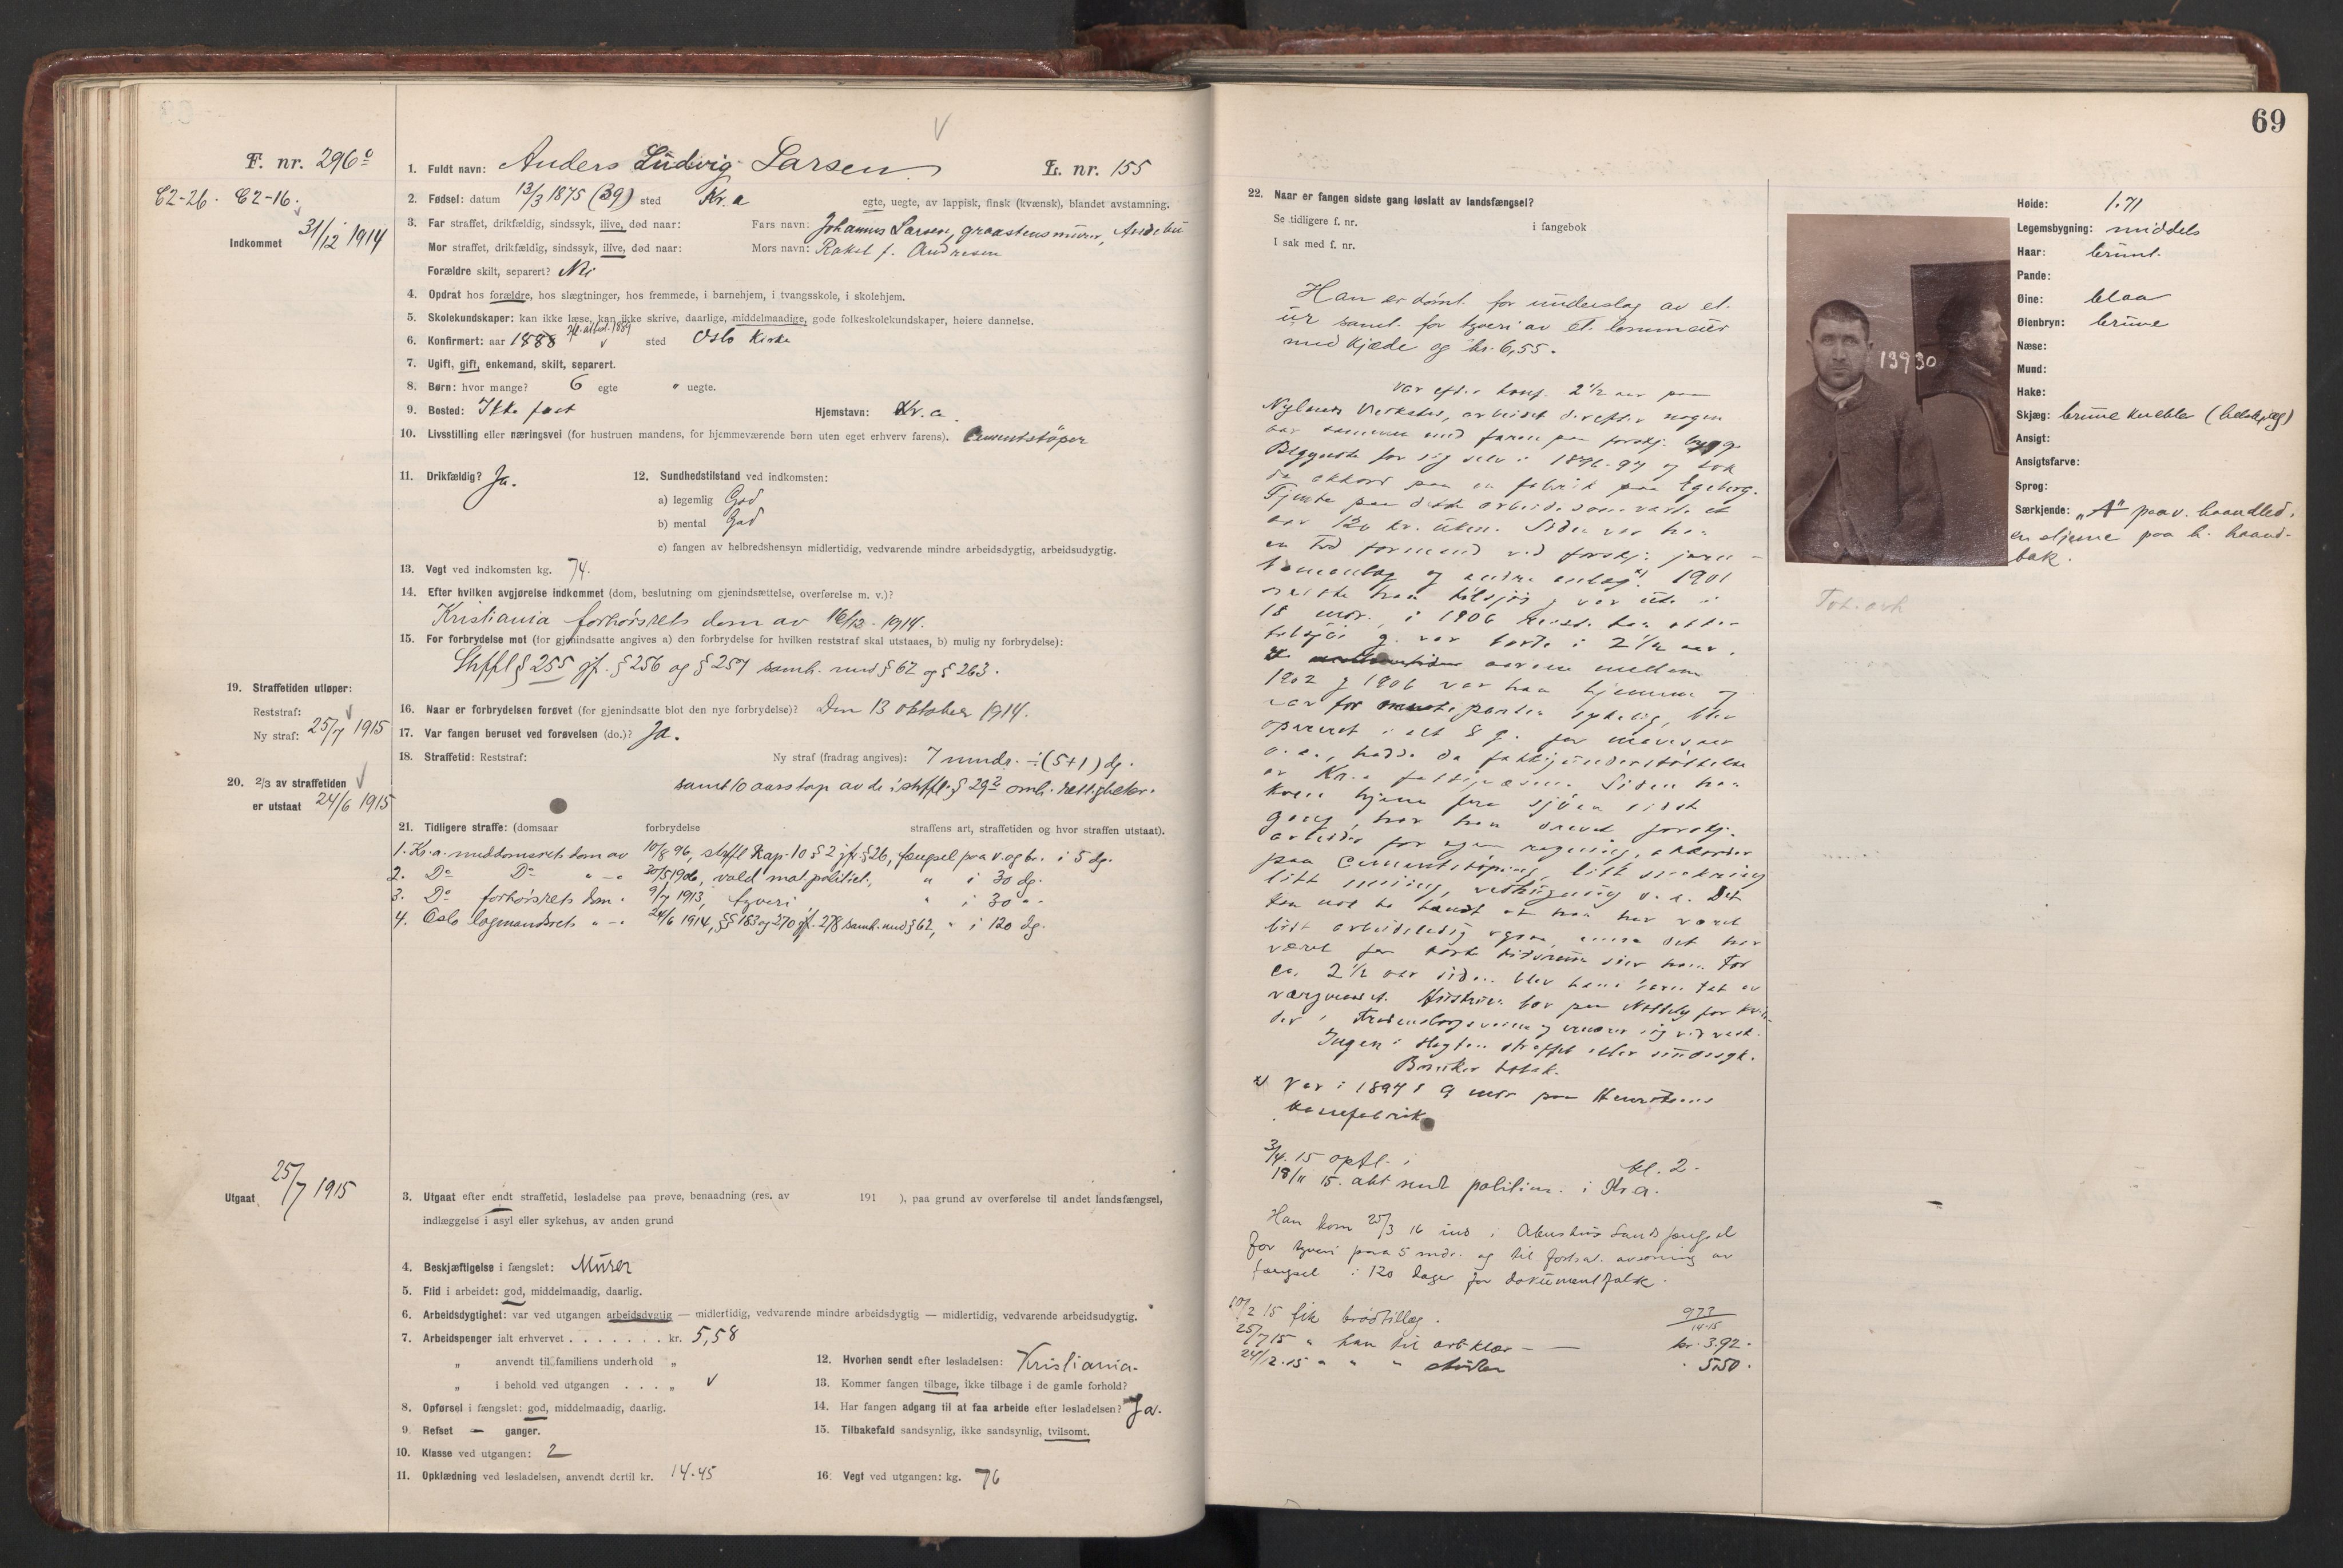 F. nr. 296
C2-26. C2-16.
Indkommet 31/12 1914
1. Fuldt navn: Anders Ludvig Larsen L. nr. 155
2. Fødsel: datum 13/3 1875 (39) sted Kr.a egte, uegte, av lappisk, finsk (kvænsk), blandet avstamning.
3. Far straffet, drikfældig, sindssyk, ilive, død naar: Fars navn: Johannes Larsen, graastensmurer,
Mor straffet, drikfældig, sindssyk, ilive, død naar: Mors navn: Rakel f. Andresen
Forældre skilt, separert? Nei
4. Opdrat hos forældre, hos slægtninger, hos fremmede, i barnehjem, i tvangsskole, i skolehjem.
5. Skolekundskaper: kan ikke læse, kan ikke skrive, daarlige, middelmaadige, gode folkeskolekundskaper, høiere dannelse.
6. Konfirmert: aar 1888 1889 sted Oslo Kirke
7. Ugift, gift, enkemand, skilt, separert.
8. Børn: hvor mange? 6 egte " uegte.
9. Bosted: Ikke fast Hjemstavn: Kr.a.
10. Livsstilling eller næringsvei (for hustruen mandens, for hjemmeværende børn uten eget erhverv farens). Cementstøper
11. Drikfældig? Ja. 12. Sundhedstilstand ved indkomsten:
a) legemlig God
b) mental God
c) fangen av helbredshensyn midlertidig, vedvarende mindre arbeidsdygtig, arbeidsudygtig.
13. Vegt ved indkomsten kg. 74.
14. Efter hvilken avgjørelse indkommet (dom, beslutning om gjenindsættelse, overførelse m. v.)?
Kristiania forhørsrets dom av 16/12 - 1914.
15. For forbrydelse mot (for gjenindsatte angives a) den forbrydelse for hvilken reststraf skal utstaaes, b) mulig ny forbrydelse):
Strffl § 255 jf. § 256 og § 257 samh. med § 62 og § 263.
16. Naar er forbrydelsen forøvet (for gjenindsatte blot den nye forbrydelse)? Den 13 oktober 1914.
17. Var fangen beruset ved forøvelsen (do.)? Ja.
18. Straffetid: Reststraf: Ny straf (fradrag angives): 7 mndr. ÷ (5+1) dg.
samt 10 aars tap av de i strffl. § 29² omh. rettigheter.
19. Straffetiden utløper:
Reststraf:
Ny straf: 25/7 1915
20. 2/3 av straffetiden
er utstaat 24/6 1915
21. Tidligere straffe: (domsaar forbrydelse straffens art, straffetiden og hvor straffen utstaat).
1. Kr.a. meddomsrets dom av 10/8 96, strffl Kap. 10 § 2 jf. § 26, fængsel paa v. og br. i 5 dg.
2. Do Do " -" 30/5 1906, vold mot politiet, " i 30 dg.
3. Do forhørsrets dom " 9/7 1913, tyveri " i 30 "-
4. Oslo lagmandsrets " -" 24/6 1914, §§ 163 og 270 jf. 278 samh. med § 62, " i 120 dg.
Utgaat 25/7 1915
3. Utgaat efter endt straffetid, løsladelse paa prøve, benaadning (res. av 191 ), paa grund av overførelse til andet landsfængsel,
indlæggelse i asyl eller sykehus, av anden grund
4. Beskjæftigelse i fængslet: Murer
5. Flid i arbeidet: god, middelmaadig, daarlig.
6. Arbeidsdygtighet: var ved utgangen arbeidsdygtig — midlertidig, vedvarende mindre arbeidsdygtig — midlertidig, vedvarende arbeidsudygtig.
7. Arbeidspenger ialt erhvervet . . . . . . . kr. 5,58
" anvendt til familiens underhold "
" i behold ved utgangen . . . "
8. Opførsel i fængslet: god, middelmaadig, daarlig.
9. Refset - ganger.
10. Klasse ved utgangen: 2
11. Opklædning ved løsladelsen, anvendt dertil kr. 14.45
12. Hvorhen sendt efter løsladelsen: Kristiania.
13. Kommer fangen tilbage, ikke tilbage i de gamle forhold?
14. Har fangen adgang til at faa arbeide efter løsladelsen? Ja.
15. Tilbakefald sandsynlig, ikke sandsynlig, tvilsomt.
16. Vegt ved utgangen: kg. 76
69
22. Naar er fangen sidste gang løslatt av landsfængsel?
Se tidligere f. nr. i fangebok
I sak med f. nr.
Han er dømt for underslag av et
ur samt for tyveri av et lommeur
med kjæde og kr. 6,55.
Var efter konf. 2 1/2 aar paa
Nylands Verksted, arbeidet derefter nogen
aar sammen med faren paa forskj. bygg.
Begyndte for sig selv i 1896-97 og tok
da akkord paa en fabrik paa Egeberg.
Tjente paa dette arbeide som varte et
aar 120 kr. uken. Siden var han
en tid formand ved forskj.
og andre anlæg x) 1901
reiste han tilsjøs, var ute i
18 mdr., i 1906 reiste han atter
tilsjøs og var borte i 2 1/2 aar.
aarene mellem
1902 og 1906 var han hjemme og
var for meste parten sykelig, blev
opereret i alt 8 g. for mavesaar
o. a., hadde da fattigunderstøttelse
av Kr.a fattigvæsen. Siden han
kom hjem fra sjøen sidst
gang, har han drevet forskj.
arbeider for egen regning, akkorder
paa cementstøping, litt snekring
litt muring, vedhugning o. a. Det
kan nok ha hændt at han har været
litt arbeidsledig ogsaa, men det har
været for korte tidsrum sier han. For
ca. 2 1/2 aar siden blev hans barn tat av
værgeraadet. Hustruen bor paa for kvin-
der i Fredensborgveien og ernærer sig ved vask.
Ingen i slegten straffet eller sindssyk.
Bruker tobak.
x) Var i 1897 9 mdr paa
3/4. 15 opfl. i kl. 2.
18/11 15. akt sendt politim. i Kr.a.
Han kom 25/3 16 ind i Akershus Landsfængsel
for tyveri paa 5 mdr. og til fortsat avsoning av
fængsel i 120 dager for dokumentfalsk.
10/2 15 fik brødtillæg. 973
14-15
25/7 15 " han til arb.klær - — kr. 3.92.
24/12.15 " " " støvler " 5.50.
13930
Høide: 1.71
Legemsbygning: middels
Haar: brunt.
Pande:
Øine: blaa
Øienbryn: brune
Næse:
Mund:
Hake:
Skjæg: brune knebler (helskjæg)
Ansigt:
Ansigtsfarve:
Sprog:
Særkjende: „A" paa v. haandled,
en stjerne paa h. haand-
bak.